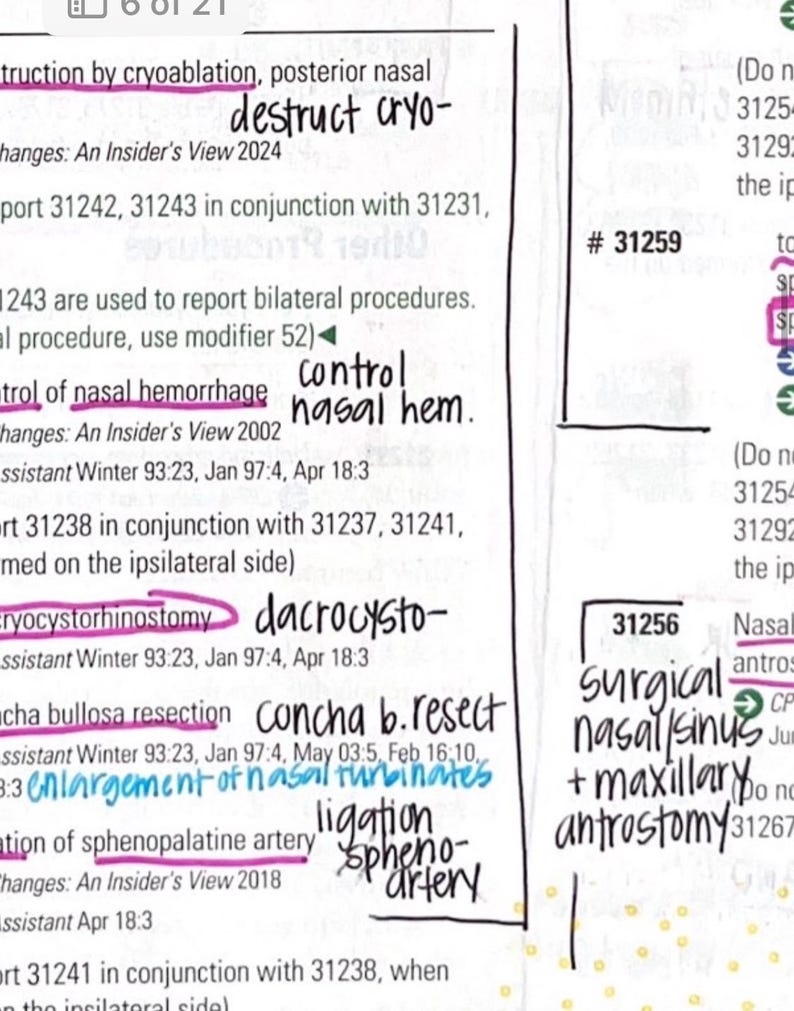 6 of 21
truction by cryoablation, posterior nasal
destruct cryo-
hanges: An Insider's View 2024
port 31242, 31243 in conjunction with 31231,
1243 are used to report bilateral procedures.
al procedure, use modifier 52)◄
trol of nasal hemorrhage
control
nasal hem.
hanges: An Insider's View 2002
ssistant Winter 93:23, Jan 97:4, Apr 18:3
rt 31238 in conjunction with 31237, 31241,
med on the ipsilateral side)
ryocystorhinostomy dacrocysto-
ssistant Winter 93:23, Jan 97:4, Apr 18:3
cha bullosa resection concha b. resect
ssistant Winter 93:23, Jan 97:4, May 03:5, Feb 16:10,
8:3 enlargement of nasal turbinates
ation of sphenopalatine artery
ligation
spheno-
artery
hanges: An Insider's View 2018
ssistant Apr 18:3
rt 31241 in conjunction with 31238, when
n the ipsilateral side)
(Do n
3125
3129
the ip
# 31259 to
sp
sp
(Do n
3125
3129
the ip
31256 Nasal
antros
surgical
nasal/sinus
+ maxillary
antrostomy
CP
Ju
Do n
31267